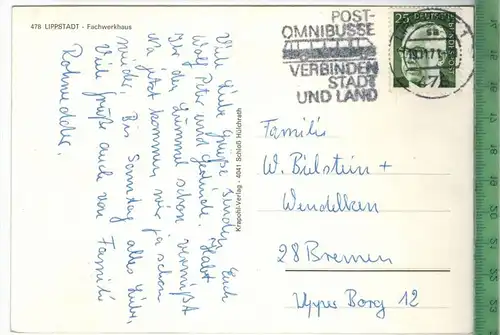 478 LIPPSTADT - Fachwerkhaus
Viele liebe Grüße senden Euch
Wolf Peter und Gerlinde. Habt
Ihr den Lümmel schon vermißt
Na jetzt kommen wir ja schon
wieder. Bis Sonntag alles Liebe,
Viele Grüße auch von Familie
Rohwedder.
Krapohl-Verlag - 4041 Schloß Hülchrath
POST-
OMNIBUSSE
VERBINDEN
STADT
UND LAND
25 DEUTSCHE BUNDESPOST
Familie
W. Bielstein +
Wendelken
28 Bremen
Upper Borg 12